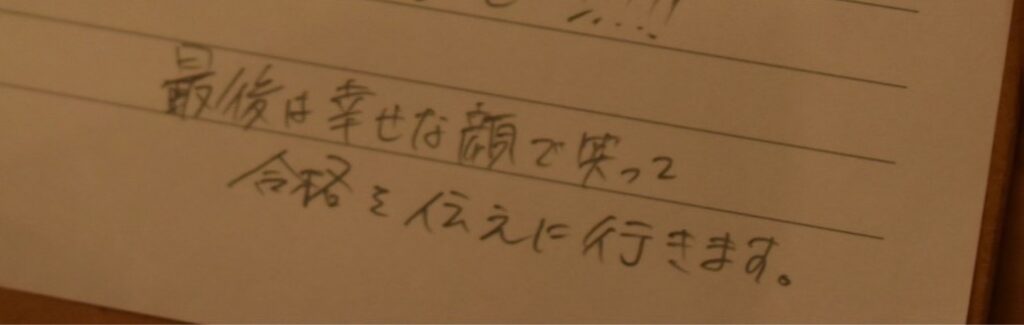 最後は幸せな顔で笑って
合格を伝えに行きます。